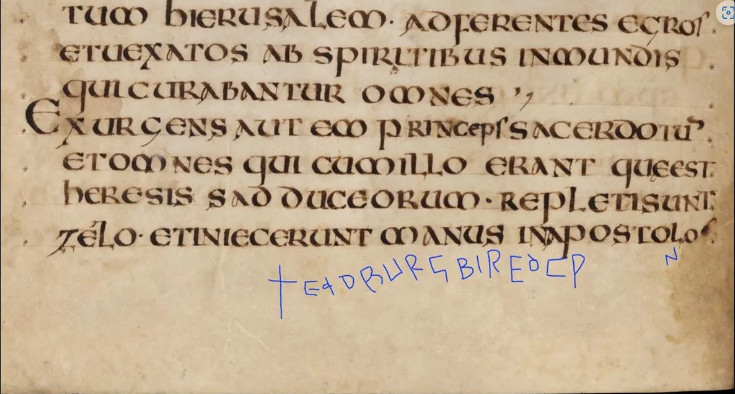 tum hierusalem· adferentes egros·
et uexatos ab spiritibus inmundis
qui curabantur omnes
Exurgens autem princeps sacerdotū
et omnes qui cum illo erant que est
heresis sadduceorum· repleti sunt
zélo· et iniecerunt manus in apostolos
N
† EADBURG BIREð CP